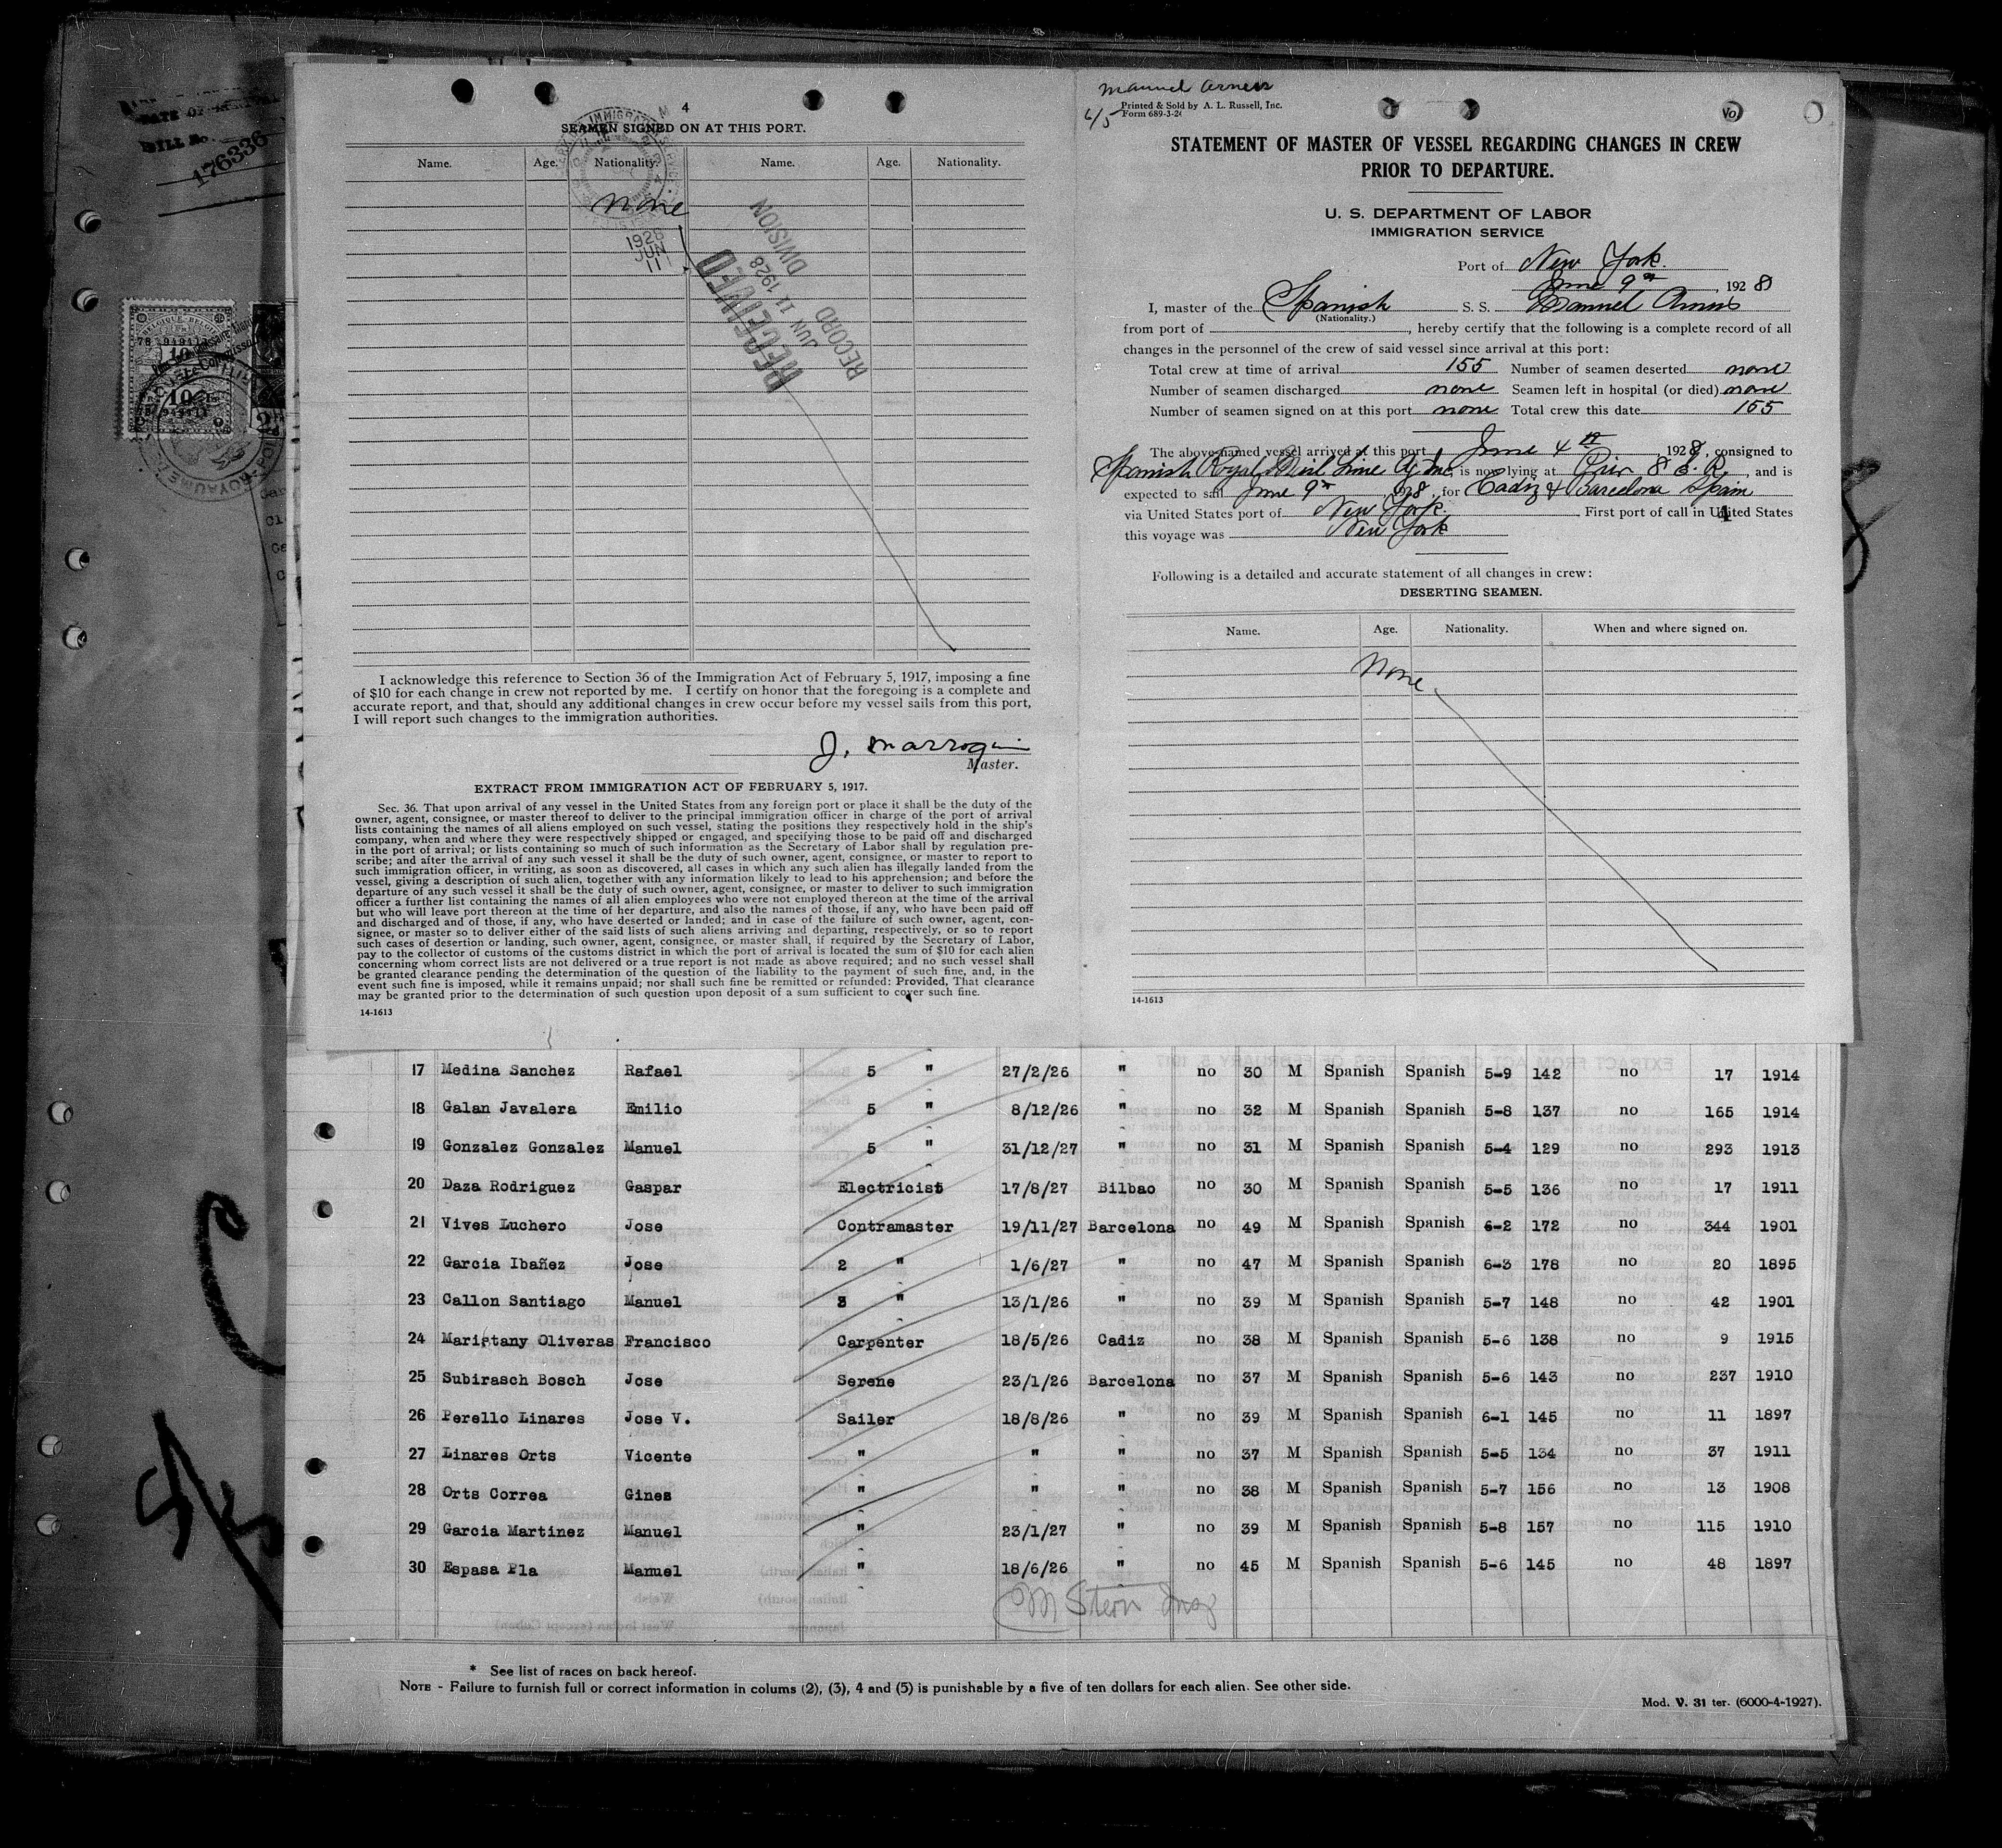 DATE OF
BILL No.
176336
BELGIQUE-BELGIË
10
4
SEAMEN SIGNED ON AT THIS PORT.
Name. Age. Nationality. Name. Age. Nationality.
none
1928
JUN
11
RECEIVED
JUN 11 1928
RECORD
DIVISION
I acknowledge this reference to Section 36 of the Immigration Act of February 5, 1917, imposing a fine
of $10 for each change in crew not reported by me. I certify on honor that the foregoing is a complete and
accurate report, and that, should any additional changes in crew occur before my vessel sails from this port,
I will report such changes to the immigration authorities.
J. Marroqin
Master.
EXTRACT FROM IMMIGRATION ACT OF FEBRUARY 5, 1917.
Sec. 36. That upon arrival of any vessel in the United States from any foreign port or place it shall be the duty of the
owner, agent, consignee, or master thereof to deliver to the principal immigration officer in charge of the port of arrival
lists containing the names of all aliens employed on such vessel, stating the positions they respectively hold in the ship's
company, when and where they were respectively shipped or engaged, and specifying those to be paid off and discharged
in the port of arrival; or lists containing so much of such information as the Secretary of Labor shall by regulation pre-
scribe; and after the arrival of any such vessel it shall be the duty of such owner, agent, consignee, or master to report to
such immigration officer, in writing, as soon as discovered, all cases in which any such alien has illegally landed from the
vessel, giving a description of such alien, together with any information likely to lead to his apprehension; and before the
departure of any such vessel it shall be the duty of such owner, agent, consignee, or master to deliver to such immigration
officer a further list containing the names of all alien employees who were not employed thereon at the time of the arrival
but who will leave port thereon at the time of her departure, and also the names of those, if any, who have been paid off
and discharged and of those, if any, who have deserted or landed; and in case of the failure of such owner, agent, con-
signee, or master so to deliver either of the said lists of such aliens arriving and departing, respectively, or so to report
such cases of desertion or landing, such owner, agent, consignee, or master shall, if required by the Secretary of Labor,
pay to the collector of customs of the customs district in which the port of arrival is located the sum of $10 for each alien
concerning whom correct lists are not delivered or a true report is not made as above required; and no such vessel shall
be granted clearance pending the determination of the question of the liability to the payment of such fine, and, in the
event such fine is imposed, while it remains unpaid; nor shall such fine be remitted or refunded: Provided, That clearance
may be granted prior to the determination of such question upon deposit of a sum sufficient to cover such fine.
14-1613
Manuel Arnus
6/5
Printed & Sold by A. L. Russell, Inc.
Form 689-3-24
STATEMENT OF MASTER OF VESSEL REGARDING CHANGES IN CREW
PRIOR TO DEPARTURE.
U. S. DEPARTMENT OF LABOR
IMMIGRATION SERVICE
Port of New York.
June 9th, 1928
I, master of the Spanish S. S. Manuel Arnus
(Nationality.)
from port of , hereby certify that the following is a complete record of all
changes in the personnel of the crew of said vessel since arrival at this port:
Total crew at time of arrival 155 Number of seamen deserted none
Number of seamen discharged none Seamen left in hospital (or died) none
Number of seamen signed on at this port none Total crew this date 155
The above-named vessel arrived at this port June 4th 1928, consigned to
Spanish Royal Mail Line Ag. Inc, is now lying at Pier 8 E. R., and is
expected to sail June 9th, 1928, for Cadiz & Barcelona Spain
via United States port of New York. First port of call in United States
this voyage was New York
Following is a detailed and accurate statement of all changes in crew:
DESERTING SEAMEN.
Name. Age. Nationality. When and where signed on.
None
14-1613
17 Medina Sanchez Rafael 5 " 27/2/26 " no 30 M Spanish Spanish 5-9 142 no 17 1914
18 Galan Javalera Emilio 5 " 8/12/26 " no 32 M Spanish Spanish 5-8 137 no 165 1914
19 Gonzalez Gonzalez Manuel 5 " 31/12/27 " no 31 M Spanish Spanish 5-4 129 no 293 1913
20 Daza Rodriguez Gaspar Electricist 17/8/27 Bilbao no 30 M Spanish Spanish 5-5 136 no 17 1911
21 Vives Luchero Jose Contramaster 19/11/27 Barcelona no 49 M Spanish Spanish 6-2 172 no 344 1901
22 Garcia Ibañez Jose 2 " 1/6/27 " no 47 M Spanish Spanish 6-3 178 no 20 1895
23 Callon Santiago Manuel 3 " 13/1/26 " no 39 M Spanish Spanish 5-7 148 no 42 1901
24 Maristany Oliveras Francisco Carpenter 18/5/26 Cadiz no 38 M Spanish Spanish 5-6 138 no 9 1915
25 Subirasch Bosch Jose Serene 23/1/26 Barcelona no 37 M Spanish Spanish 5-6 143 no 237 1910
26 Perello Linares Jose V. Sailer 18/8/26 " no 39 M Spanish Spanish 6-1 145 no 11 1897
27 Linares Orts Vicente " " " no 37 M Spanish Spanish 5-5 134 no 37 1911
28 Orts Correa Gines " " " no 38 M Spanish Spanish 5-7 156 no 13 1908
29 Garcia Martinez Manuel " 23/1/27 " no 39 M Spanish Spanish 5-8 157 no 115 1910
30 Espasa Pla Manuel " 18/6/26 " no 45 M Spanish Spanish 5-6 145 no 48 1897
M Stern Insp
* See list of races on back hereof.
NOTE - Failure to furnish full or correct information in colums (2), (3), 4 and (5) is punishable by a five of ten dollars for each alien. See other side.
Mod. V. 31 ter. (6000-4-1927).